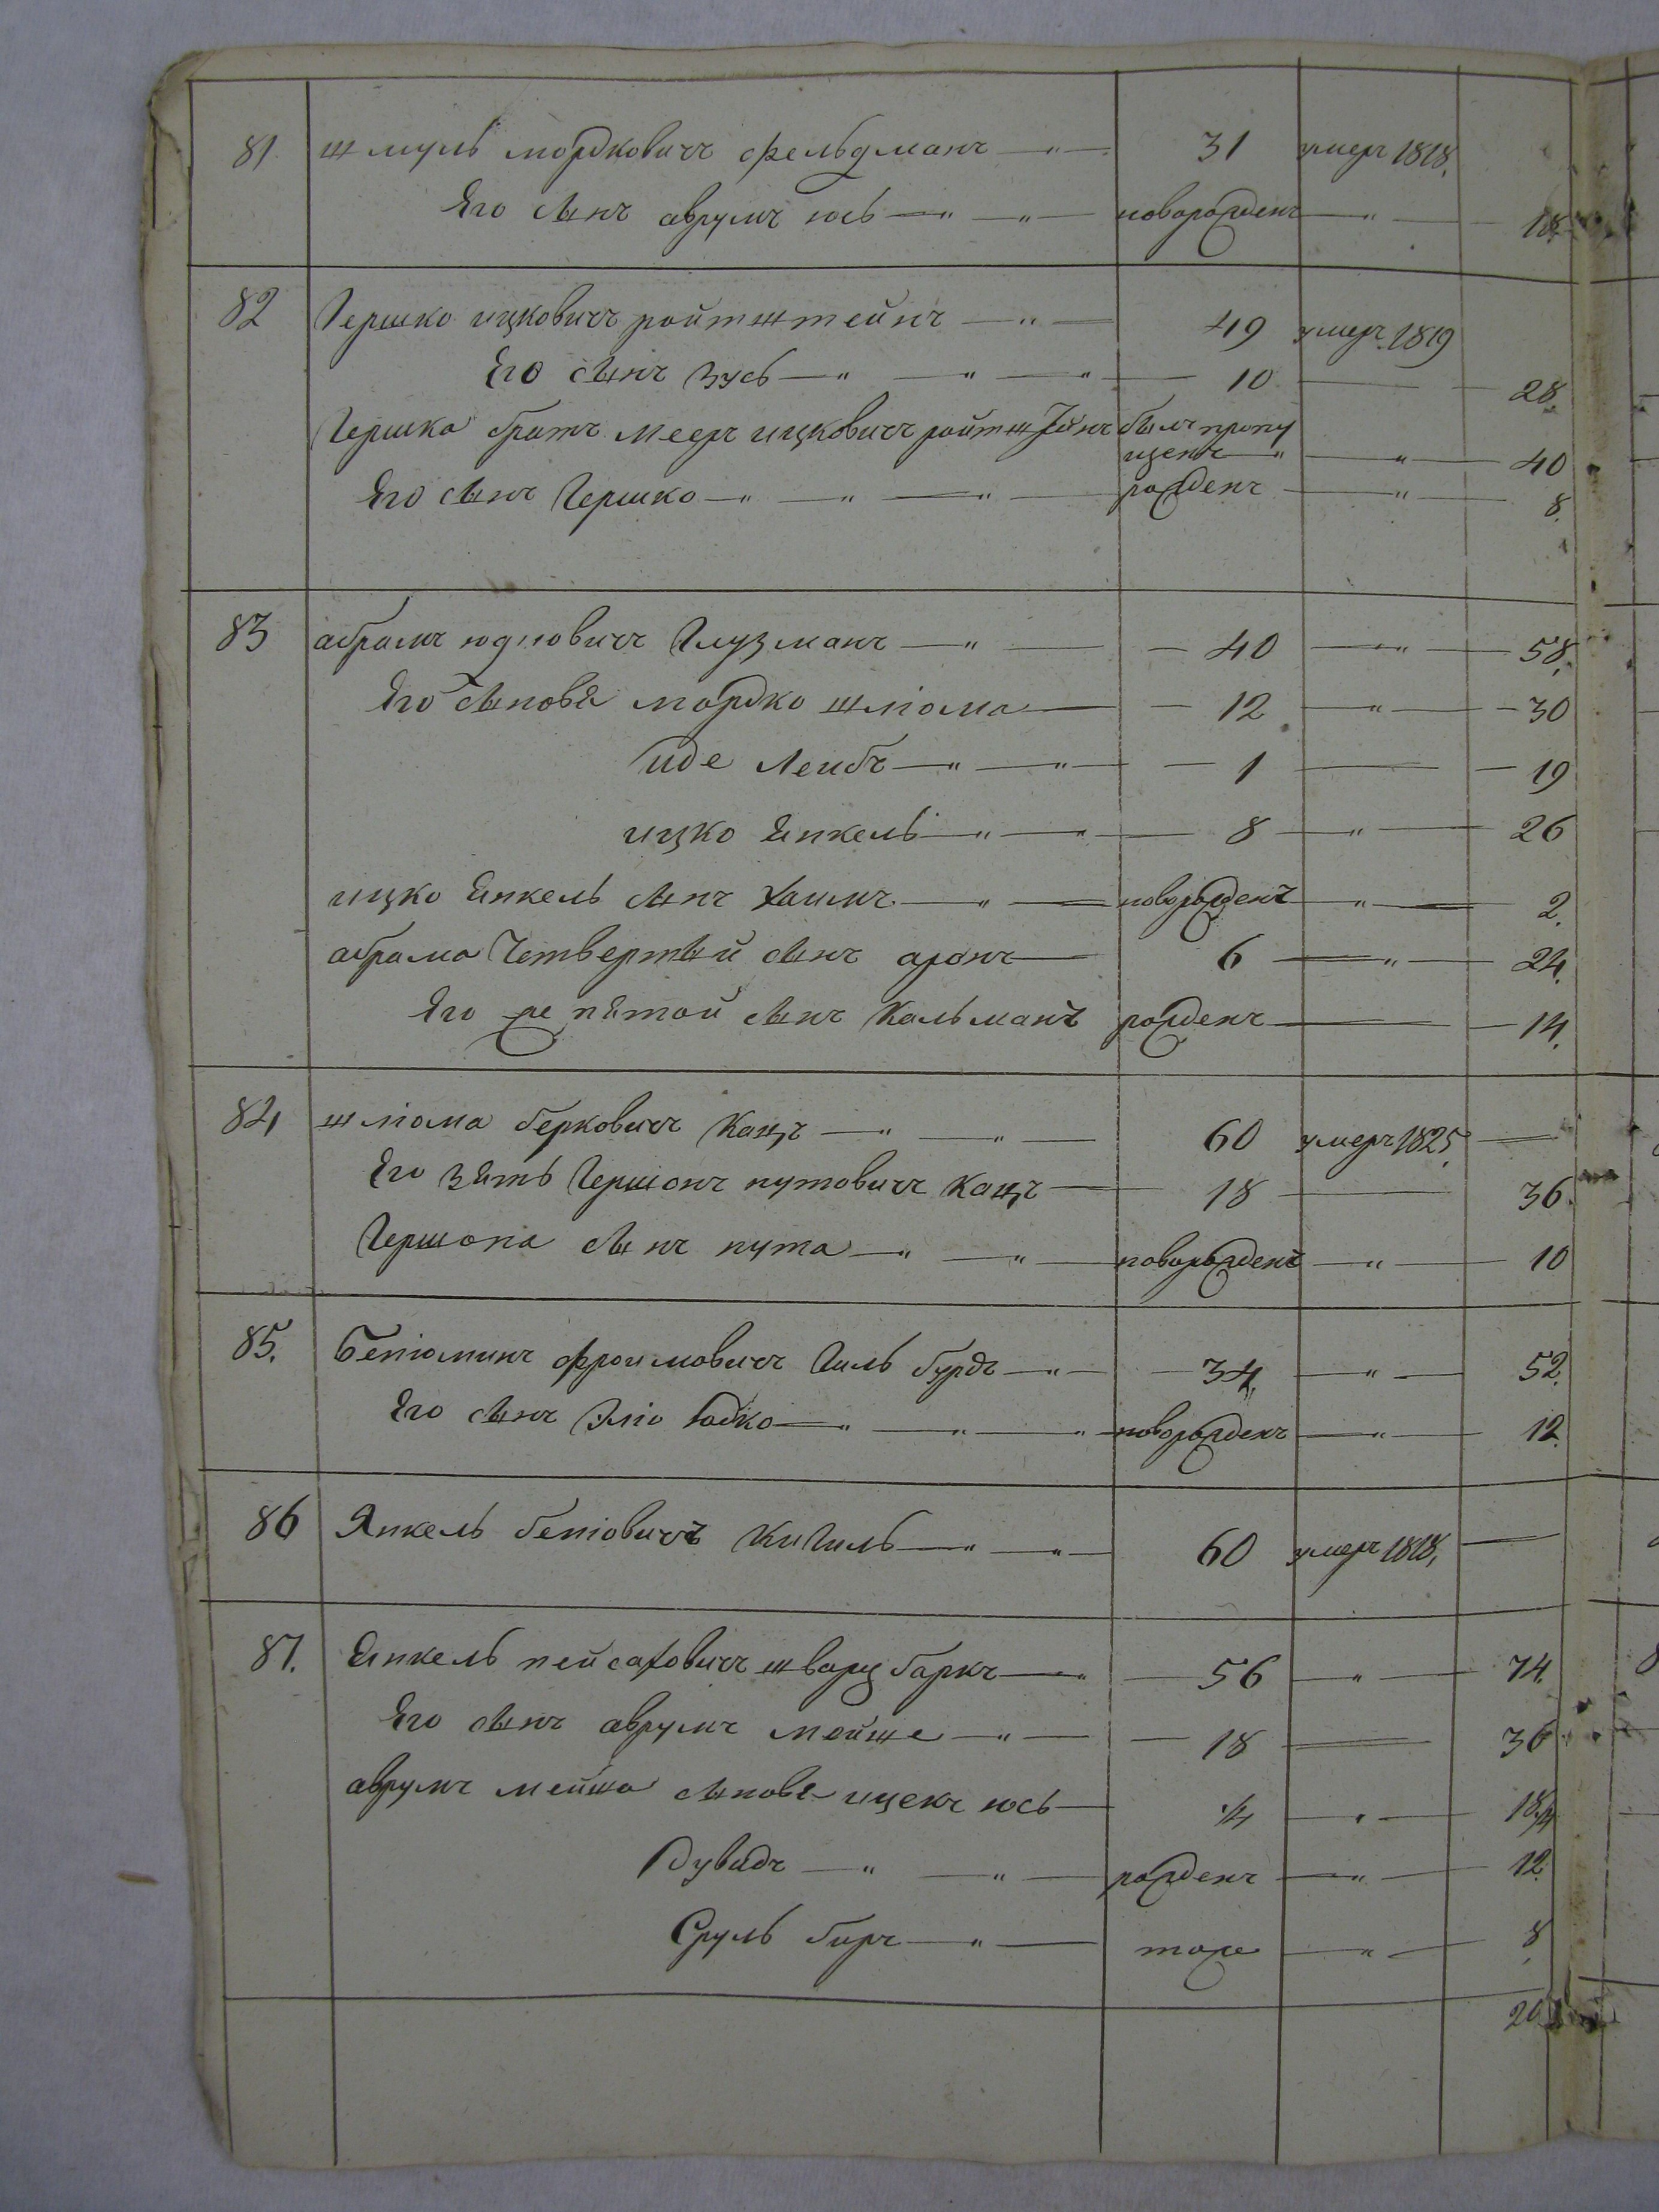 81. Шмуль Мордковичъ Фельдманъ — " — 31 умеръ 1818.
Его сынъ Аврумъ Юсь — " — " — новорожденъ — " — 18.
82 Гершко Ицковичъ Ройтштейнъ — " — 49 умеръ 1819
Его сынъ Зусь — " — " — " — 10 — 28.
Гершка братъ Мееръ Ицковичъ Ройтштейнъ былъ пропу
щенъ — " — " — 40
Его сынъ Гершко — " — " — " — рожденъ — " — 8.
83 Абрамъ Юдковичъ Глузманъ — " — 40 — " — 58.
Его сыновя Мордко Шліома — 12 — " — 30
Иде Леибъ — " — " — 1 — 19
Ицко Янкель — " — " — 8 — " — 26
Ицко Янкель сынъ Хаимъ — " — новорожденъ — " — 2.
Абрама четвертый сынъ Аронъ — 6 — " — 24.
Его же пятой сынъ Кальманъ рожденъ — 14.
84 Шліома Берковичъ Кацъ — " — " — 60 умеръ 1825. —
Его зять Гершонъ Нутовичъ Кацъ — 18 — 36.
Гершона сынъ Нута — " — " — новорожденъ — " — 10
85. Беніоминъ Фроимовичъ Гильбурдъ — " — 34. — " — 52.
Его сынъ Эліо Юдко — " — " — " — новорожденъ — " — 12.
86 Янкель Беніовичъ Кигиль — " — " — 60 умеръ 1818, —
87. Янкель Пейсаховичъ Шварцбаркъ — " — 56 — " — 74.
Его сынъ Аврумъ Мойше — " — 18 — 36
Аврумъ Мейша сыновя Ицекъ Юсь — ¼ — " — 18¼
Дувидъ — " — " — рожденъ — " — 12.
Сруль Беръ — " — тоже — " — 8.
20